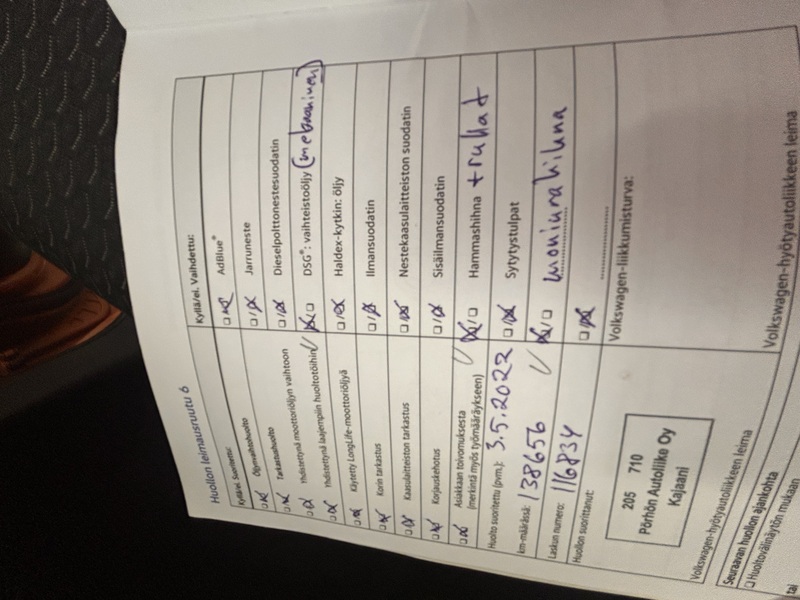 Huollon leimausruutu 6
Kyllä/ei. Suoritettu:
Öljynvaihtohuolto
Tarkastushuolto
Yhdistettynä moottoriöljyn vaihtoon
Yhdistettynä laajempiin huoltotöihin
Käytetty LongLife-moottoriöljyä
Korin tarkastus
Kaasulaitteiston tarkastus
Korjauskehotus
Asiakkaan toivomuksesta
(merkintä myös työmääräykseen)
Huolto suoritettu (pvm.): 3.5.2022
km-määrässä: 138656
Laskun numero: 116834
Huollon suorittanut:
205 710
Pörhön Autoliike Oy
Kajaani
Volkswagen-hyötyautoliikkeen leima
Seuraavan huollon ajankohta
Huoltovälinäytön mukaan
tai
Kyllä/ei. Vaihdettu:
AdBlue®
Jarruneste
Dieselpolttonestesuodatin
DSG®: vaihteistoöljy (mekaaninen)
Haldex-kytkin: öljy
Ilmansuodatin
Nestekaasulaitteiston suodatin
Sisäilmansuodatin
Hammashihna + rullat
Sytytystulpat
moniurahihna
Volkswagen-liikkumisturva:
Volkswagen-hyötyautoliikkeen leima